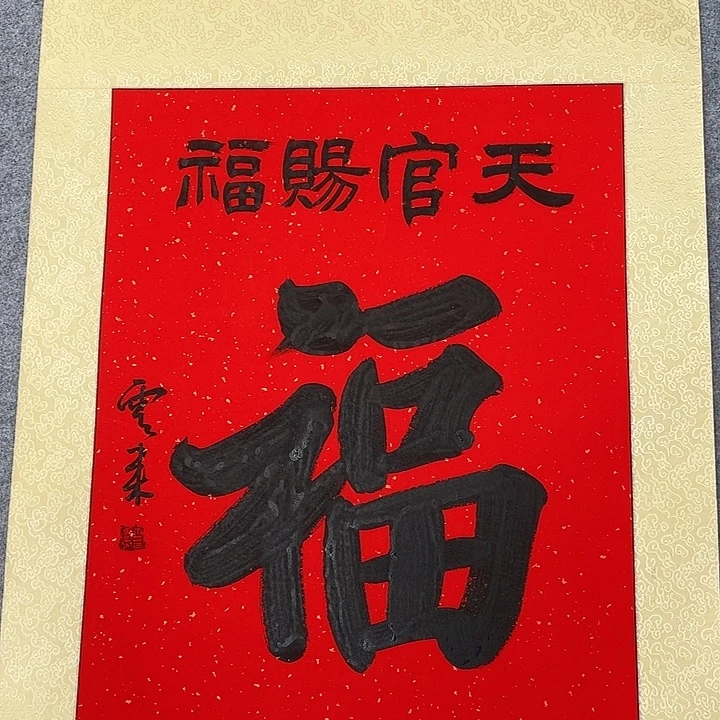 天官賜福
福
雲来